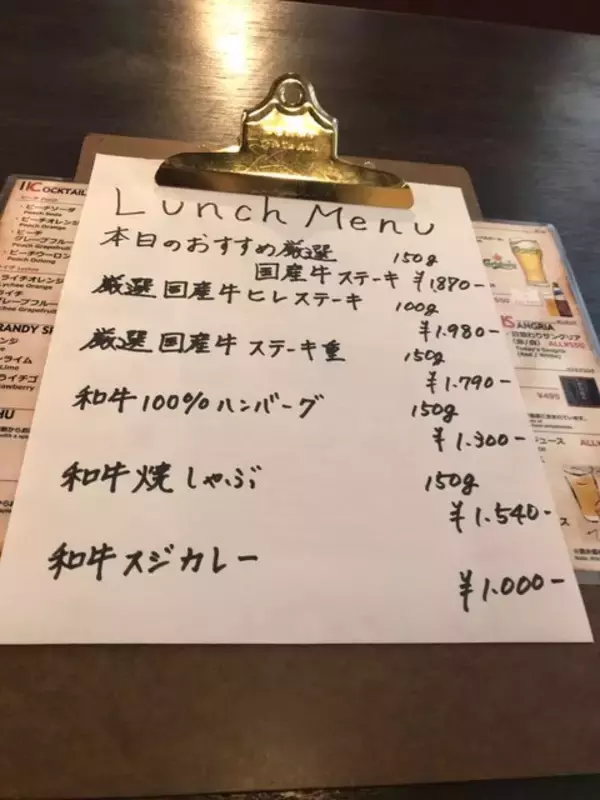 Lunch Menu
本日のおすすめ厳選 150g
国産牛ステーキ ¥1870-
厳選国産牛ヒレステーキ 100g
¥1.980-
厳選国産牛ステーキ重 150g
¥1.790-
和牛100%ハンバーグ 150g
¥1.300-
和牛焼しゃぶ 150g
¥1.540-
和牛スジカレー
¥1.000-
COCKTAIL
・ピーチソーダ
Peach Soda
・ピーチオレンジ
Peach Orange
・ピーチ
グレープフルー
Peach Grapefruit
・ピーチウーロン
Peach Oolong
ライチオレンジ
Lychee Orange
ライチ
グレープフルー
Lychee Grapefruit
RANDY
ライム
Lime
ライチゴ
HU
Carlsberg
ANGRIA
日替わりサングリア
(赤/白) ALL¥550
Today's Sangria
(Red / White)
¥495
ュース ALL